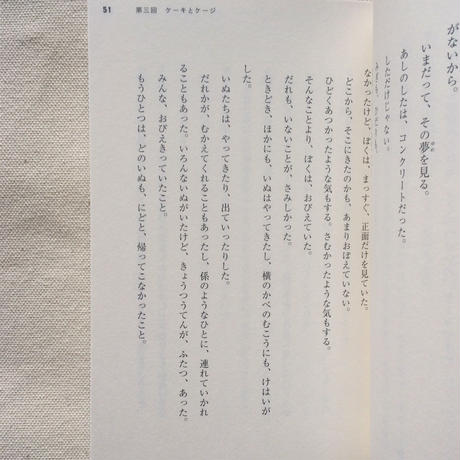 51 第三回 ケーキとケージ
がないから。
いまだって、その夢を見る。
あしのしたは、コンクリートだった。
しただけじゃない。
なかったけど、ぼくは、まっすぐ、正面だけを見ていた。
どこから、そこにきたのかも、あまりおぼえていない。
ひどくあつかったような気もする。さむかったような気もする。
そんなことより、ぼくは、おびえていた。
だれも、いないことが、さみしかった。
ときどき、ほかにも、いぬはやってきたし、横のかべのむこうにも、けはいが
した。
いぬたちは、やってきたり、出ていったりした。
だれかが、むかえてくれることもあったし、係のようなひとに、連れていかれ
ることもあった。いろんないぬがいたけど、きょうつうてんが、ふたつ、あった。
みんな、おびえきっていたこと。
もうひとつは、どのいぬも、にどと、帰ってこなかったこと。